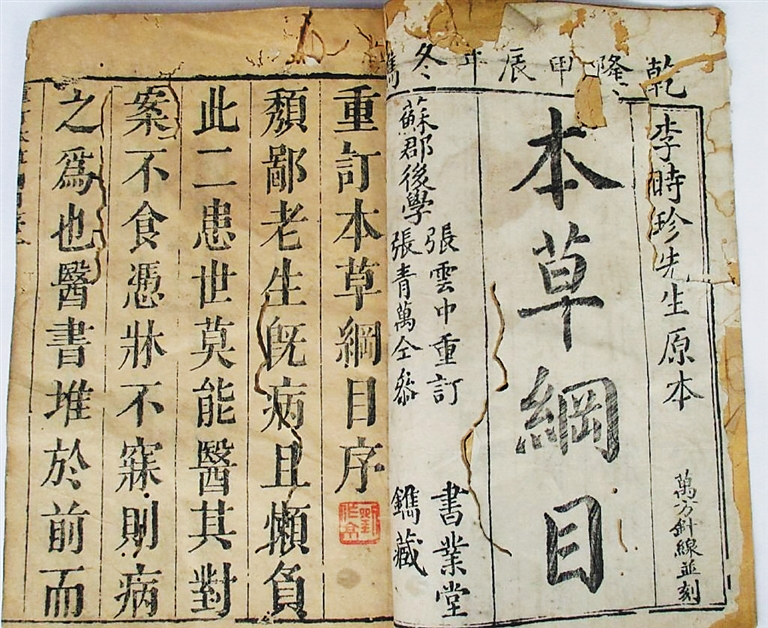 乾隆甲辰年冬鐫
李時珍先生原本
萬方針線並刻
本草綱目
蘇郡後學
張雲中重訂
張青萬仝參
書業堂
鐫藏
重訂本草綱目序
頽鄙老生旣病且懶負
此二患世莫能醫其對
案不食憑牀不寐則病
之爲也醫書堆於前而